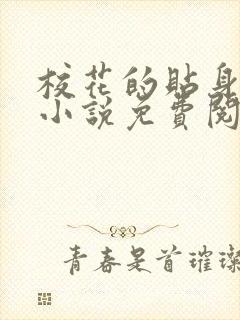 校花的贴身
小説免費閱
青春是首璀璨